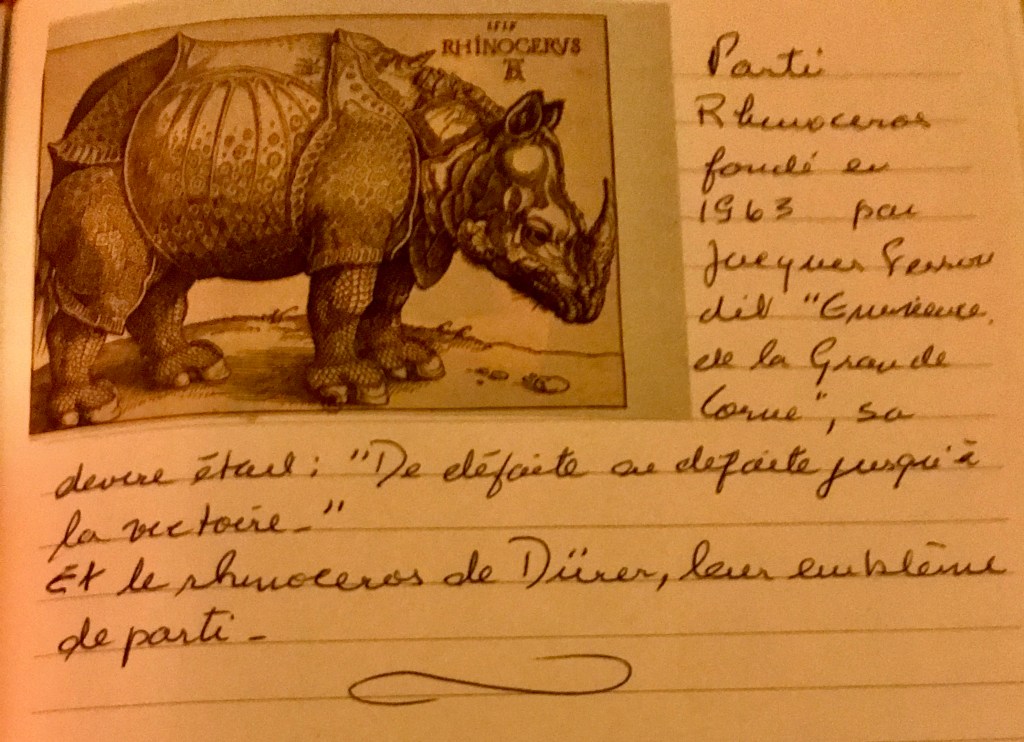 1515
RHINOCERVS
Parti
Rhinoceros
fondé en
1963 par
Jacques Ferron
dit "Eminence
de la Grande
Corne", sa
devise était : "De défaite en défaite jusqu'à
la victoire-"
Et le rhinoceros de Dürer, leur emblème
de parti-